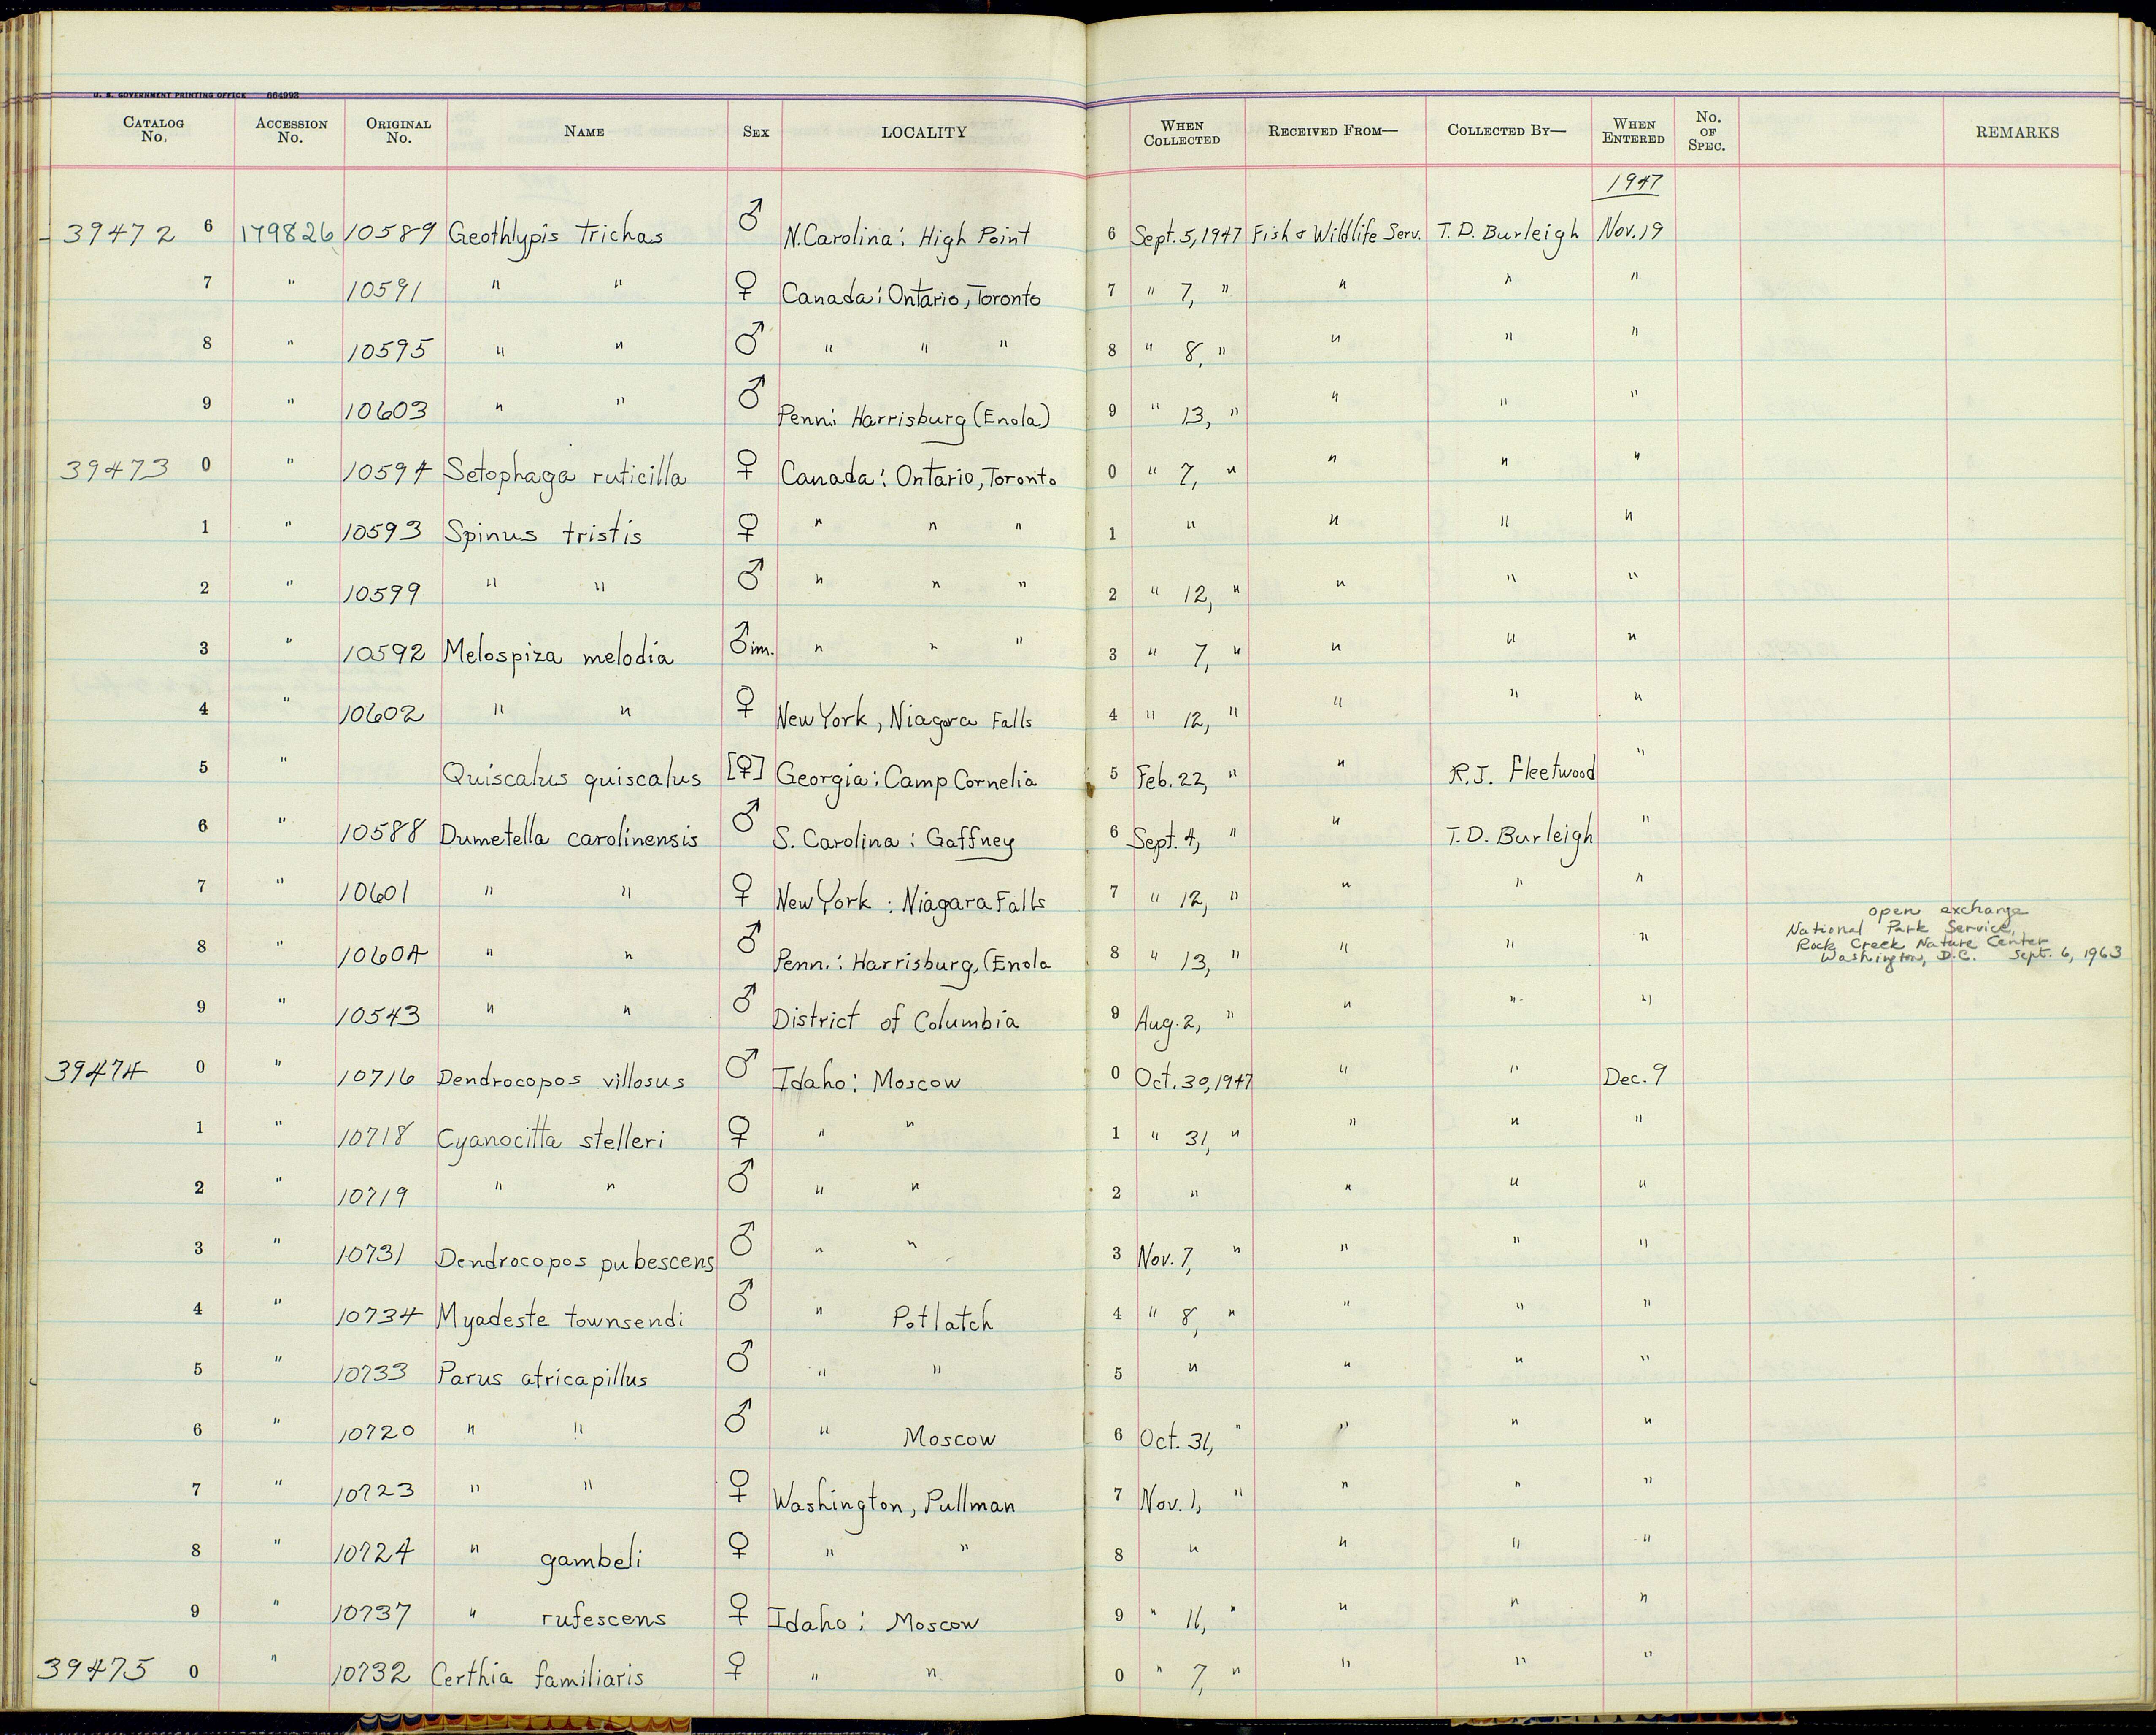 U. S. GOVERNMENT PRINTING OFFICE 664993
CATALOG No. ACCESSION No. ORIGINAL No. NAME SEX LOCALITY WHEN COLLECTED RECEIVED FROM— COLLECTED BY— WHEN ENTERED No. OF SPEC. REMARKS
1947
39472 6 179826 10589 Geothlypis trichas ♂ N. Carolina: High Point 6 Sept. 5, 1947 Fish & Wildlife Serv. T. D. Burleigh Nov. 19
7 " 10591 " " ♀ Canada: Ontario, Toronto 7 " 7, " " " "
8 " 10595 " " ♂ " " " 8 " 8, " " " "
9 " 10603 " " ♂ Penn: Harrisburg (Enola) 9 " 13, " " " "
39473 0 " 10594 Setophaga ruticilla ♀ Canada: Ontario, Toronto 0 " 7, " " " "
1 " 10593 Spinus tristis ♀ " " " 1 " " " "
2 " 10599 " " ♂ " " " 2 " 12, " " " "
3 " 10592 Melospiza melodia ♂ im. " " " 3 " 7, " " " "
4 " 10602 " " ♀ New York, Niagara Falls 4 " 12, " " " "
5 " Quiscalus quiscalus [♀] Georgia: Camp Cornelia 5 Feb. 22, " " R. J. Fleetwood "
6 " 10588 Dumetella carolinensis ♂ S. Carolina: Gaffney 6 Sept. 4, " " T. D. Burleigh "
7 " 10601 " " ♀ New York: Niagara Falls 7 " 12, " " " "
8 " 10604 " " ♂ Penn.: Harrisburg, (Enola 8 " 13, " " " "
open exchange
National Park Service,
Rock Creek Nature Center
Washington, D.C. Sept. 6, 1963
9 " 10543 " " ♂ District of Columbia 9 Aug. 2, " " " "
39474 0 " 10716 Dendrocopos villosus ♂ Idaho: Moscow 0 Oct. 30, 1947 " " Dec. 9
1 " 10718 Cyanocitta stelleri ♀ " " 1 " 31, " " " "
2 " 10719 " " ♂ " " 2 " " " "
3 " 10731 Dendrocopos pubescens ♂ " " 3 Nov. 7, " " " "
4 " 10734 Myadeste townsendi ♂ " Potlatch 4 " 8, " " " "
5 " 10733 Parus atricapillus ♂ " " 5 " " " "
6 " 10720 " " ♂ " Moscow 6 Oct. 31, " " " "
7 " 10723 " " ♀ Washington, Pullman 7 Nov. 1, " " " "
8 " 10724 " gambeli ♀ " " 8 " " " "
9 " 10737 " rufescens ♀ Idaho: Moscow 9 " 11, " " " "
39475 0 " 10732 Certhia familiaris ♀ " " 0 " 7, " " " "